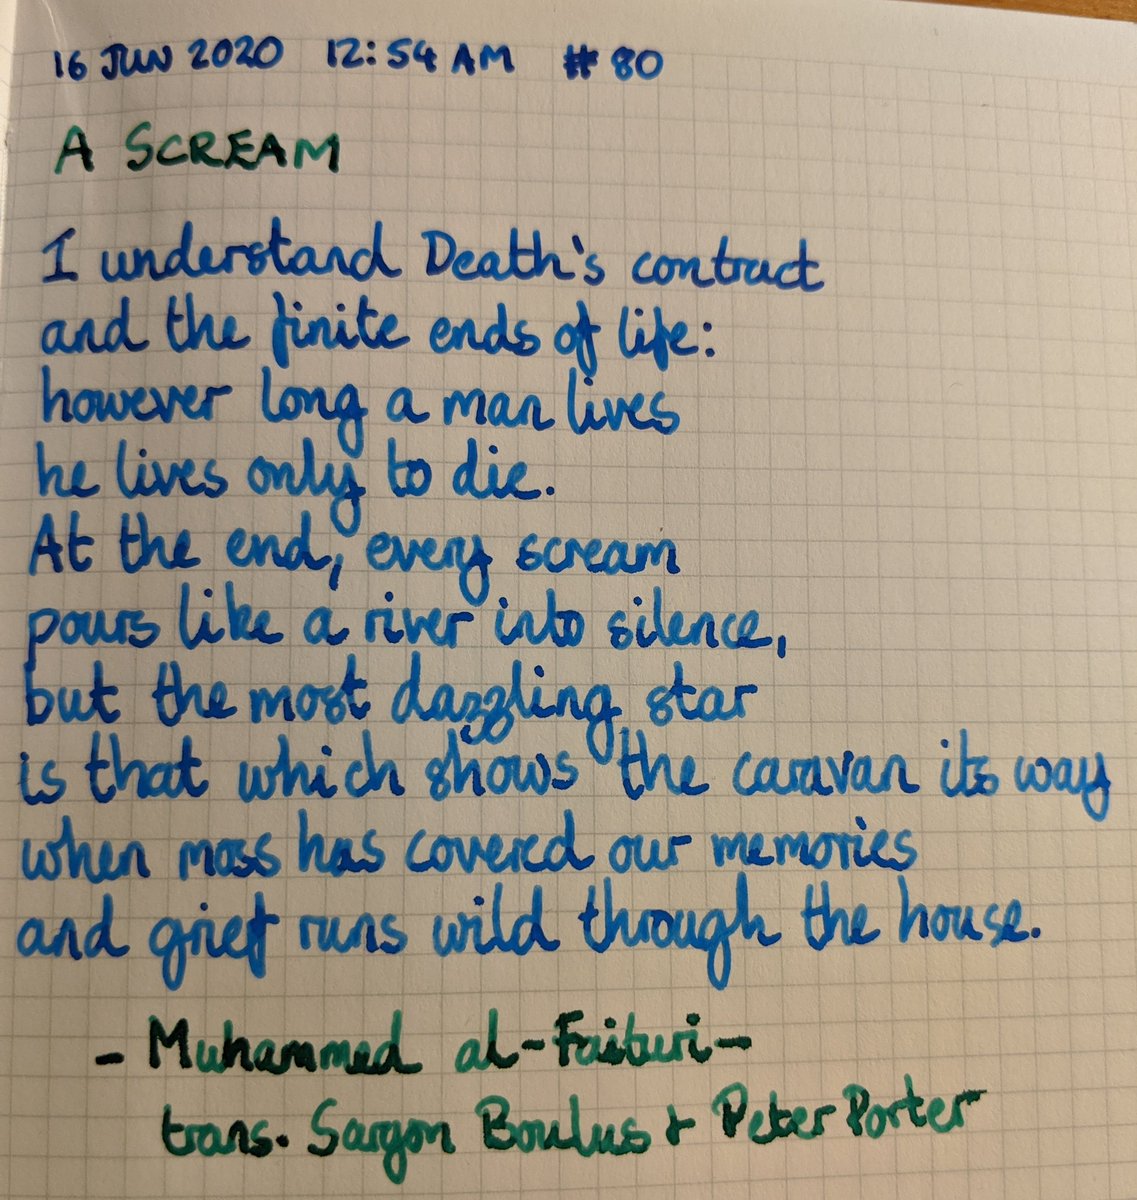 16 JUN 2020 12:54 AM #80
A SCREAM
I understand Death's contract
and the finite ends of life:
however long a man lives
he lives only to die.
At the end, every scream
pours like a river into silence,
but the most dazzling star
is that which shows the caravan its way
when moss has covered our memories
and grief runs wild through the house.
- Muhammed al-Faituri-
trans. Sargon Boulus + Peter Porter